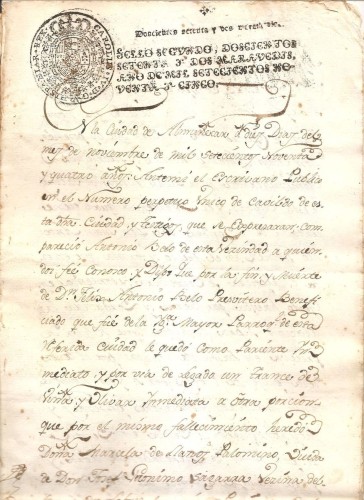 Doscientos setenta y dos maravedis.
SELLO SEGVNDO, DOSCIENTOS
SETENTA Y DOS MARAVEDIS,
AÑO DE MIL SETECIENTOS NO-
VENTA Y CINCO.
Ciudad de Almuñecar a diez Dias del
mes de Noviembre de mil setecientos Noventa
y quatro años: Antemi el Escribano Publico
en el Numero perpetuo Unico de Cavildo de es
ta dha. Ciudad, y testigos que se Expresaran: com
parecio Antonio Relo de esta Vezindad a quien
doi feé Conozco, y Dixo Que por la fin, y Muerte
de Dn. Antonio Relo Presvitero Benefi
ciado que fué de la Mayor Parroql. de esta
referida Ciudad le quedó como Pariente In
mediato, y por via de legado un Trance de
Viña, y Olivar Inmediata a otra porcion
que por el mismo fallecimiento heredó
Doña de Palomino, Viuda
de Don Geronimo Vezina del